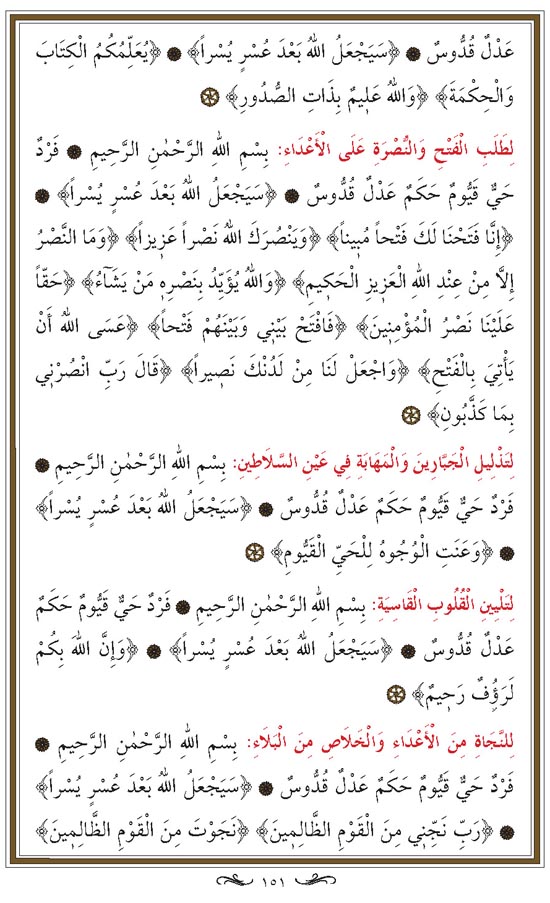 عَدْلٌ قُدُّوسٌ ۞ ﴿سَيَجْعَلُ اللهُ بَعْدَ عُسْرٍ يُسْراً﴾ ۞ ﴿يُعَلِّمُكُمُ الْكِتَابَ
وَالْحِكْمَةَ﴾ ﴿وَاللهُ عَلِيمٌ بِذَاتِ الصُّدُورِ﴾ ۞
لِطَلَبِ الْفَتْحِ وَالنُّصْرَةِ عَلَى الْأَعْدَاءِ: بِسْمِ اللهِ الرَّحْمٰنِ الرَّحِيمِ ۞ فَرْدٌ
حَيٌّ قَيُّومٌ حَكَمٌ عَدْلٌ قُدُّوسٌ ۞ ﴿سَيَجْعَلُ اللهُ بَعْدَ عُسْرٍ يُسْراً﴾ ۞
﴿إِنَّا فَتَحْنَا لَكَ فَتْحاً مُبِيناً﴾ ﴿وَيَنْصُرَكَ اللهُ نَصْراً عَزِيزاً﴾ ﴿وَمَا النَّصْرُ
إِلَّا مِنْ عِنْدِ اللهِ الْعَزِيزِ الْحَكِيمِ﴾ ﴿وَاللهُ يُؤَيِّدُ بِنَصْرِهِ مَنْ يَشَآءُ﴾ ﴿حَقّاً
عَلَيْنَا نَصْرُ الْمُؤْمِنِينَ﴾ ﴿فَافْتَحْ بَيْنِي وَبَيْنَهُمْ فَتْحاً﴾ ﴿عَسَى اللهُ أَنْ
يَأْتِيَ بِالْفَتْحِ﴾ ﴿وَاجْعَلْ لَنَا مِنْ لَدُنْكَ نَصِيراً﴾ ﴿قَالَ رَبِّ انْصُرْنِي
بِمَا كَذَّبُونِ﴾ ۞
لِتَذْلِيلِ الْجَبَّارِينَ وَالْمَهَابَةِ فِي عَيْنِ السَّلَاطِينِ: بِسْمِ اللهِ الرَّحْمٰنِ الرَّحِيمِ ۞
فَرْدٌ حَيٌّ قَيُّومٌ حَكَمٌ عَدْلٌ قُدُّوسٌ ۞ ﴿سَيَجْعَلُ اللهُ بَعْدَ عُسْرٍ يُسْراً﴾
۞ ﴿وَعَنَتِ الْوُجُوهُ لِلْحَيِّ الْقَيُّومِ﴾ ۞
لِتَلْيِينِ الْقُلُوبِ الْقَاسِيَةِ: بِسْمِ اللهِ الرَّحْمٰنِ الرَّحِيمِ ۞ فَرْدٌ حَيٌّ قَيُّومٌ حَكَمٌ
عَدْلٌ قُدُّوسٌ ۞ ﴿سَيَجْعَلُ اللهُ بَعْدَ عُسْرٍ يُسْراً﴾ ۞ ﴿وَإِنَّ اللهَ بِكُمْ
لَرَؤُفٌ رَحِيمٌ﴾ ۞
لِلنَّجَاةِ مِنَ الْأَعْدَاءِ وَالْخَلَاصِ مِنَ الْبَلَاءِ: بِسْمِ اللهِ الرَّحْمٰنِ الرَّحِيمِ ۞
فَرْدٌ حَيٌّ قَيُّومٌ حَكَمٌ عَدْلٌ قُدُّوسٌ ۞ ﴿سَيَجْعَلُ اللهُ بَعْدَ عُسْرٍ يُسْراً﴾
۞ ﴿رَبِّ نَجِّنِي مِنَ الْقَوْمِ الظَّالِمِينَ﴾ ﴿نَجَوْتَ مِنَ الْقَوْمِ الظَّالِمِينَ﴾
١٥١